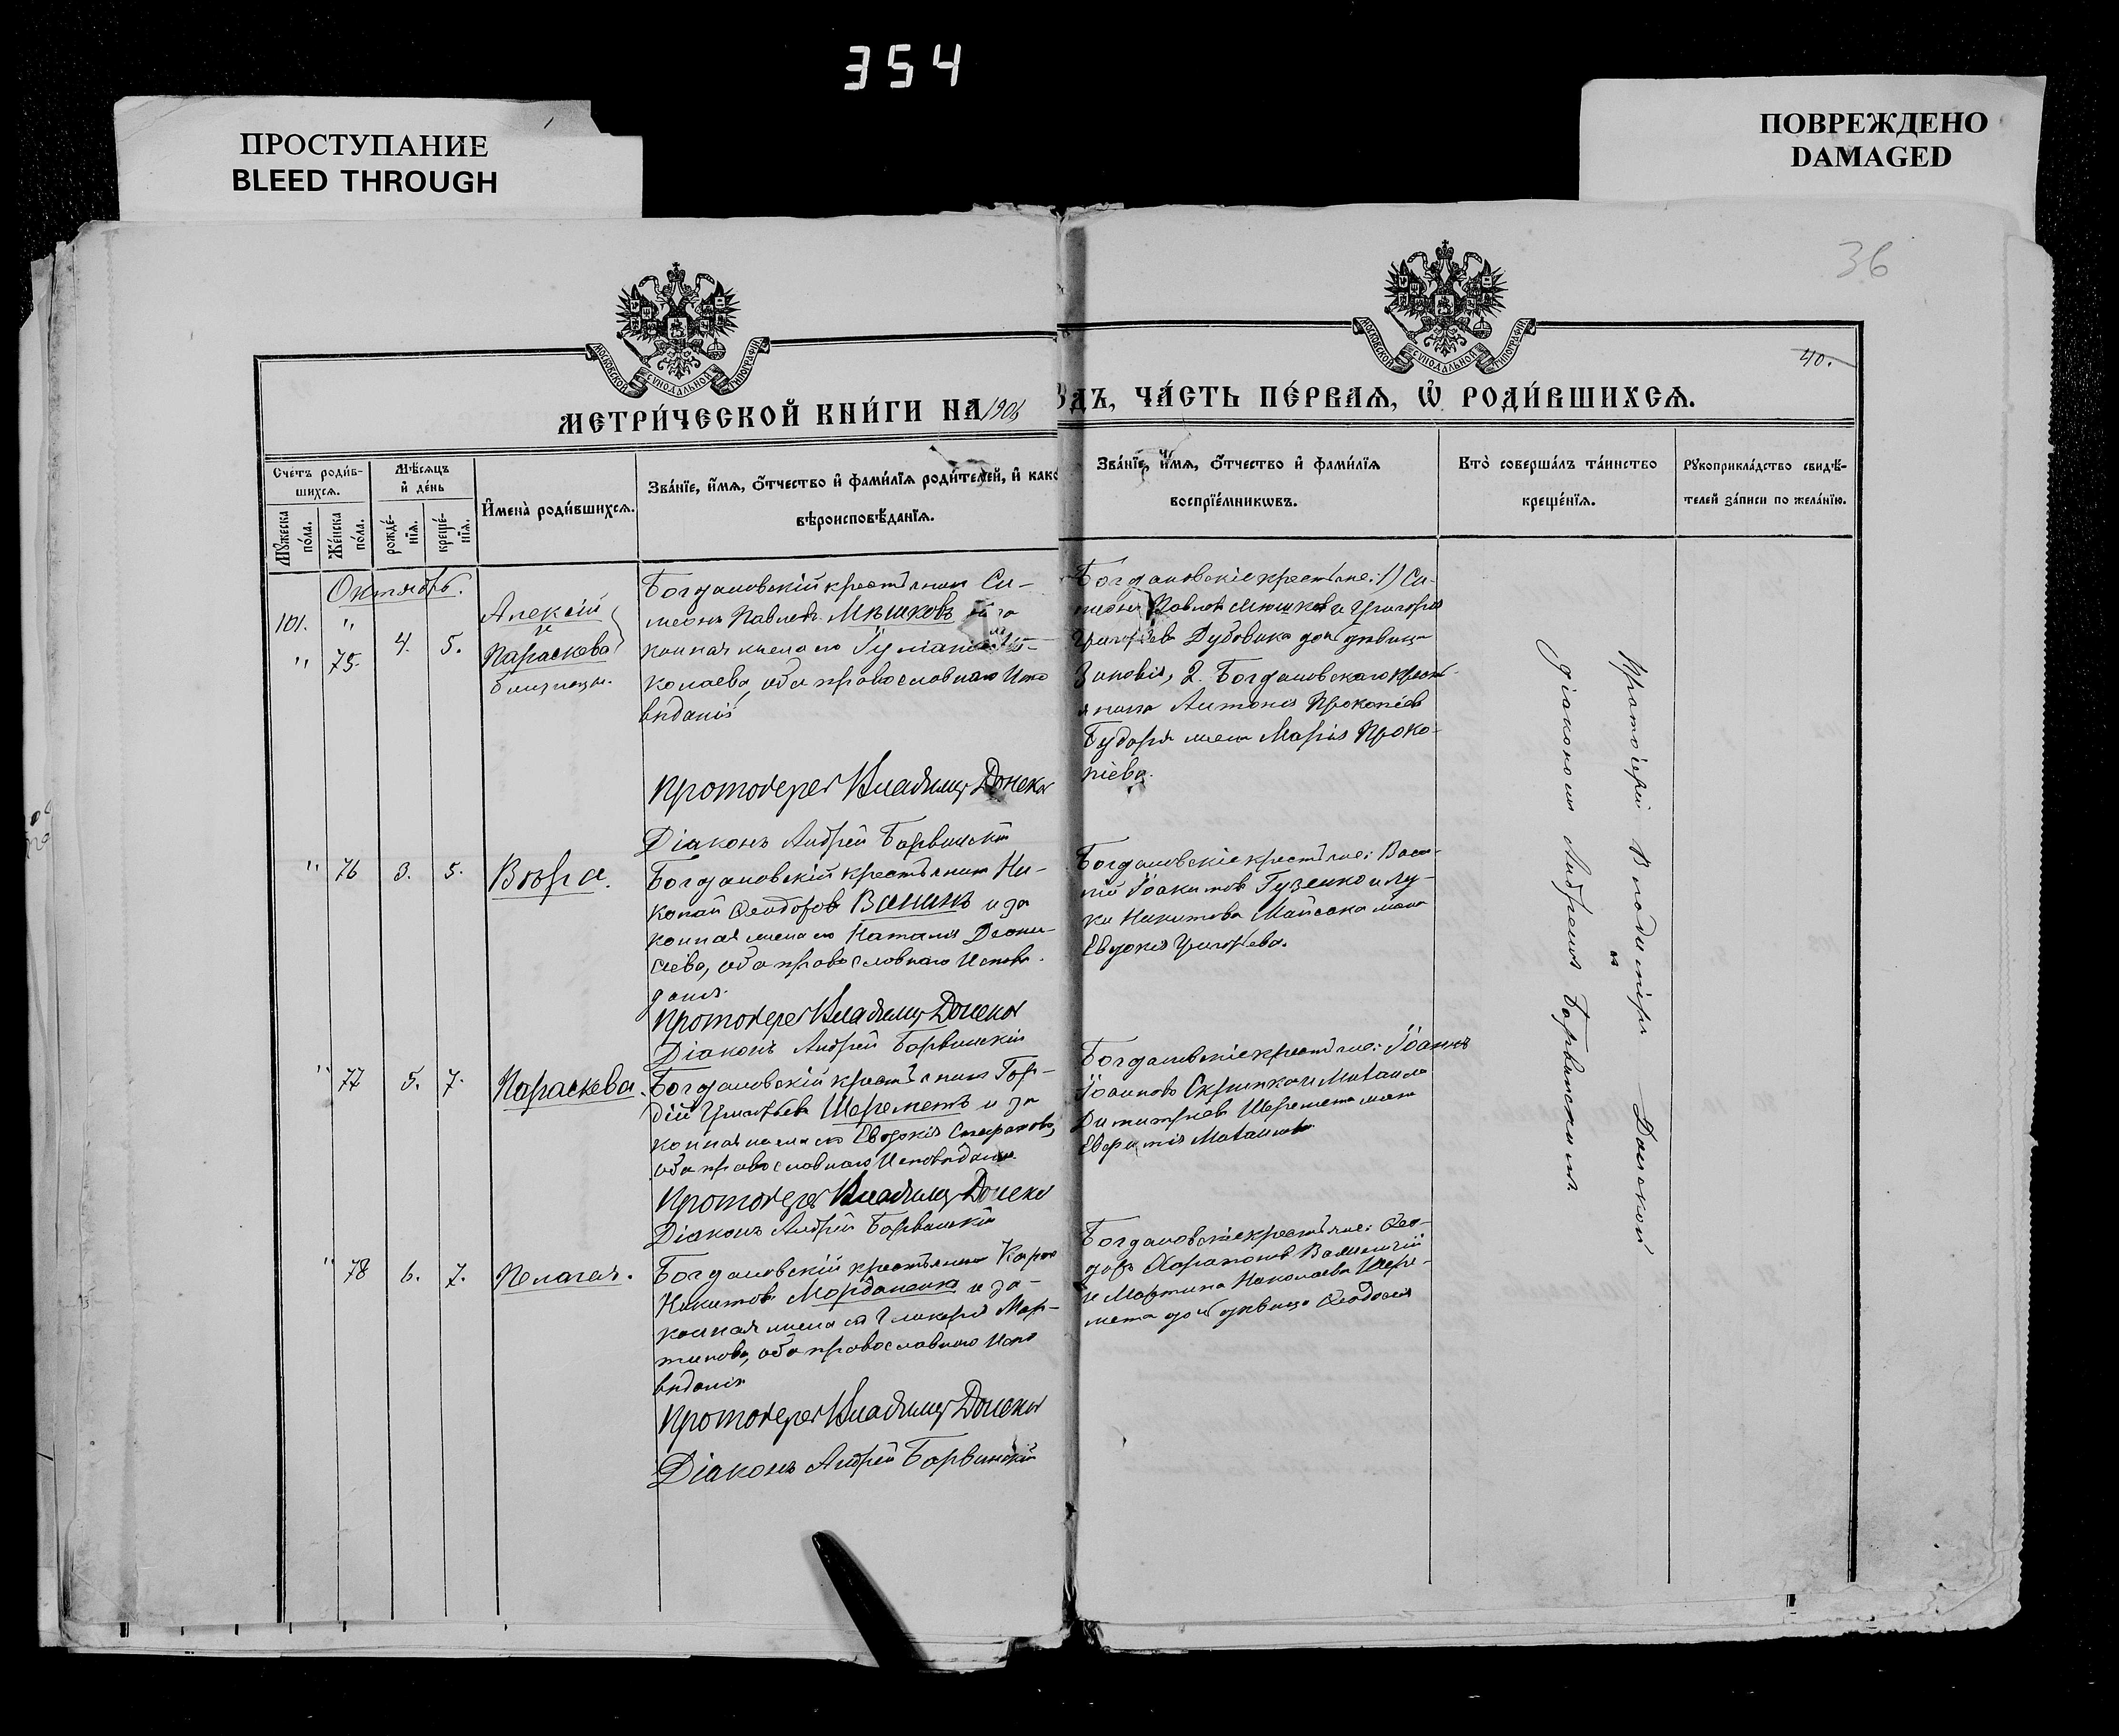 354
ПРОСТУПАНИЕ
BLEED THROUGH
ПОВРЕЖДЕНО
DAMAGED
36
40.
МОСКОВСКОЙ СУНОДАЛЬНОЙ ТИПОГРАФIИ
МОСКОВСКОЙ СУНОДАЛЬНОЙ ТИПОГРАФIИ
МЕТРИ́ЧЕСКОЙ КНИ́ГИ НА 1906
ГѠДЪ, ЧА́СТЬ ПЕ́РВАѦ, Ѡ҆ РОДИ́ВШИХСѦ.
Сче́тъ роди́в-
шихсѧ.
Мѹжеска
по́ла.
Же́нска
по́ла.
Мѣ́сѧцъ
и҆ де́нь
рожде́-
нїѧ.
креще́-
нїѧ.
И҆мена̀ роди́вшихсѧ.
Зва́нїе, и҆́мѧ, ѻ҆́тчество и҆ фами́лїѧ роди́телей, и҆ како
вѣроисповѣ́данїѧ.
Зва́нїе, и҆́мѧ, ѻ҆́тчество и҆ фами́лїѧ
воспрїе́мникѡвъ.
Кто̀ соверша́лъ та́инство
креще́нїѧ.
Рꙋкоприкла́дство свидѣ́-
телей за́писи по жела́нїю.
Октябрь.
101. "
" 75. 4. 5.
Алексій
и
Параскева
близнецы.
Богдановскій крестьянинъ Си-
меонъ Павловъ Мѣшковъ и за
конная жена его
колаева, оба православнаго испо
вѣданія
Протоіерей Владимір Донской
Діаконъ Андрей Барвинскій
Богдановскіе крестьяне: 1) Си-
меонъ Павловъ Мюшковъ и Григорія
Григорьева Дубовика дочь дѣвица
Зиновія, 2. Богдановскаго крест
янина Антонія Прокопіева
Бударя жена Марія Проко-
піева.
" 76 3. 5. Вѣра.
Богдановскій крестьянинъ Ни-
колай Ѳеодоровъ Ванинъ и за
конная жена его Наталія Діони-
сіева, оба православнаго исповѣ-
данія.
Протоіерей Владимір Донской
Діаконъ Андрей Барвинскій
Богдановскіе крестьяне: Васи-
лій Іоакимовъ Гузенко и Лу-
ки Никитова Майсака жена
Евдокія Григорьева.
" 77 5. 7. Параскева.
Богдановскій крестьянинъ Гор-
дій Григорьевъ Шереметъ и за
конная жена его Евдокія Стефанова,
оба православнаго исповѣданія
Протоіерей Владимір Донской
Діаконъ Андрей Барвинскій
Богдановскіе крестьяне: Іоаннъ
Іоанновъ Скрипка и Михаила
Димитріева Шеремета жена
Евфимія Михаилова
" 78 6. 7. Пелагея.
Богдановскій крестьянинъ Карпъ
Никитовъ Марданенко и за-
конная жена его Гликерія Мар-
тинова, оба православнаго испо
вѣданія
Протоіерей Владимір Донской
Діаконъ Андрей Барвинскій
Богдановскіе крестьяне: Ѳео-
доръ
и Мартина Николаева Шере-
мета дочь дѣвица Ѳеодосія
Протоіерей Владиміръ Донской
съ
діакономъ Андреемъ Барвинскимъ